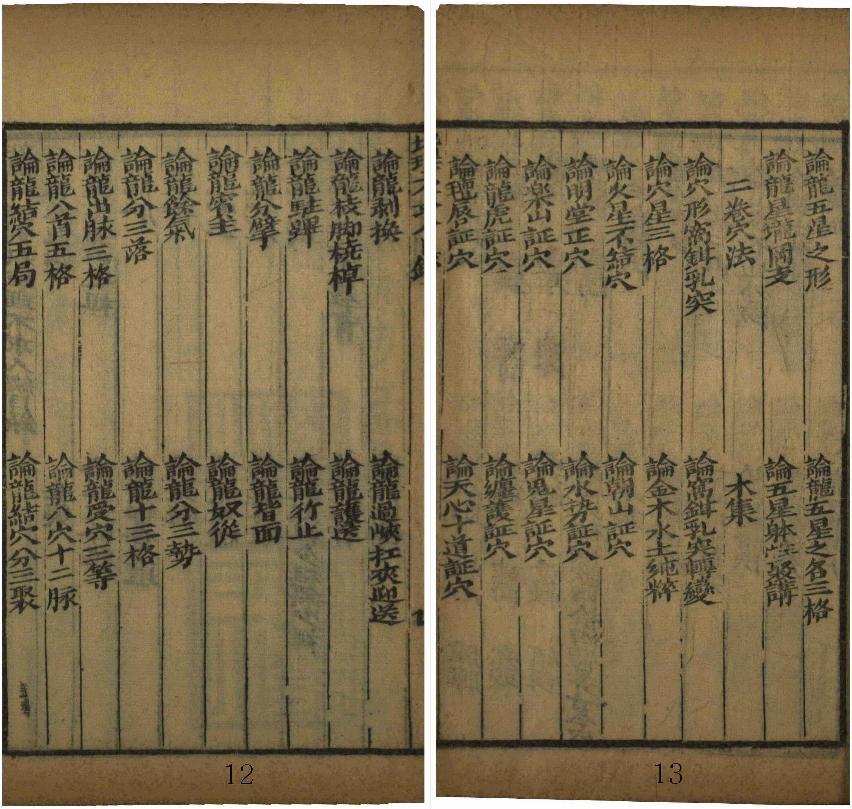 論龍剥換 論龍過峽扛夾迎送
論龍枝脚橈棹 論龍護送
論龍駐蹕 論龍行止
論龍分擘 論龍背面
論龍賓主 論龍奴從
論龍餘氣 論龍分三勢
論龍分三落 論龍十三格
論龍出脉三格 論龍受穴三等
論龍入首五格 論龍入穴十二脉
論龍結穴五局 論龍結穴分三聚
12
論龍五星之形 論龍五星之名三格
論龍星壠岡支 論五星躰性講
二卷穴法 木集
論穴形窩鉗乳突 論窩鉗乳突轉變
論穴星三格 論金木水土純粹
論火星不結穴 論朝山証穴
論明堂正穴 論水势証穴
論樂山証穴 論鬼星証穴
論龍虎証穴 論纏護証穴
論毡唇証穴 論天心十道証穴
13